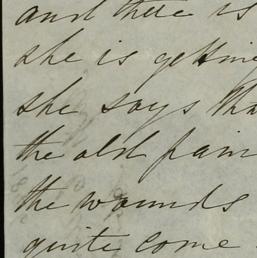 and there is
she is getting
she says tha
the old pain
the wounds
quite come